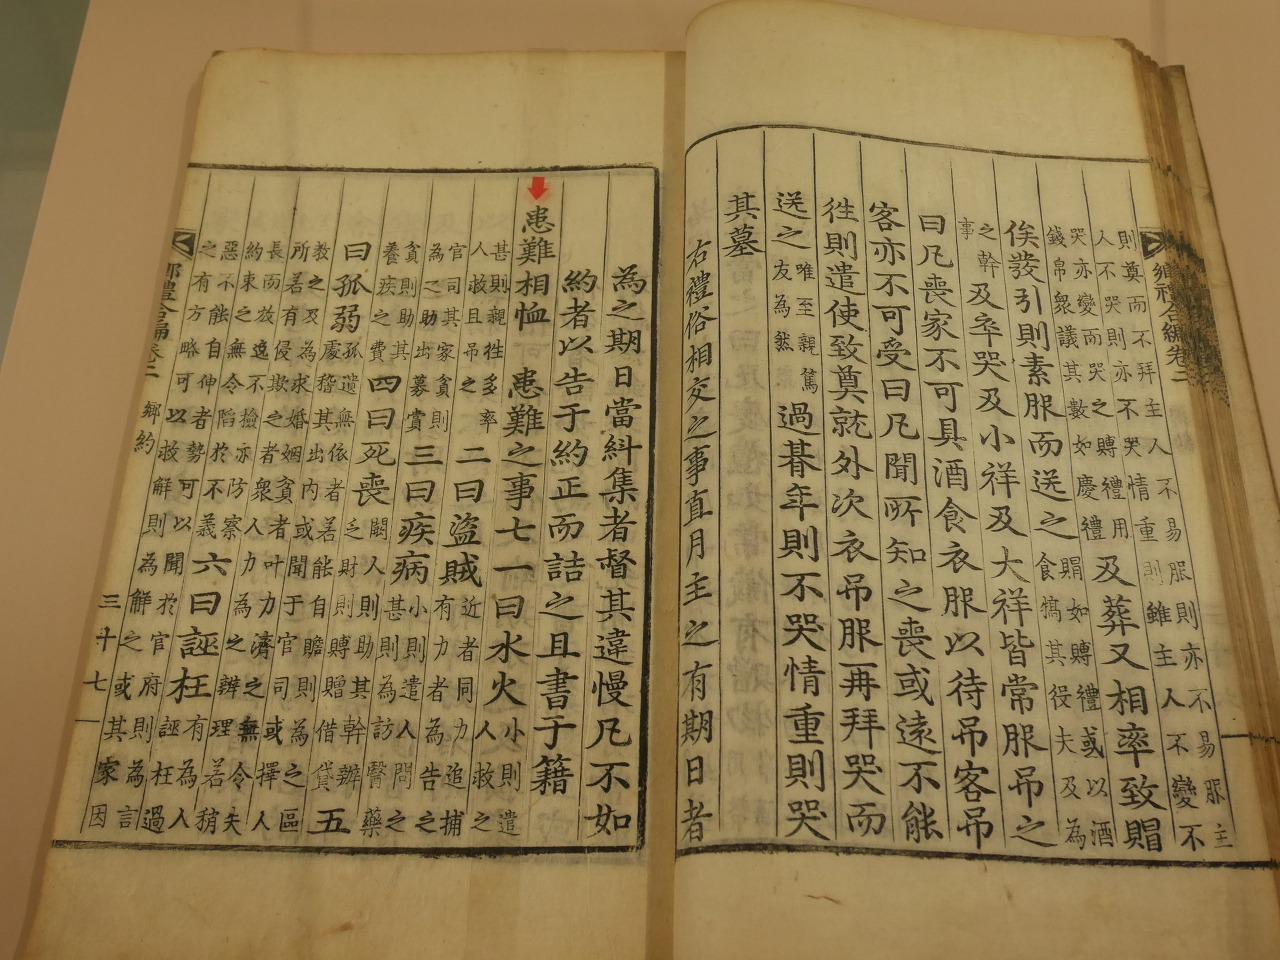 則奠而不拜主人不易服則亦不易服主
人不哭則亦不哭情重則雖主人不變不
哭亦變而哭之賻禮用
錢帛衆議其數如慶禮
及葬又相率致賵
俟發引則素服而送之
賵如賻禮或以酒
食犒其役夫及為
之幹
事
及卒哭及小祥及大祥皆常服吊之
曰凡喪家不可具酒食衣服以待吊客吊
客亦不可受曰凡聞所知之喪或遠不能
徃則遣使致奠就外次衣吊服再拜哭而
送之
唯至親篤
友為然
過朞年則不哭情重則哭
其墓
右禮俗相交之事直月主之有期日者
鄉禮合編卷二
為之期日當糾集者督其違慢凡不如
約者以告于約正而詰之且書于籍
患難相恤 患難之事七一曰水火
小則遣
人救之
甚則親徃多率
人救且吊之
二曰盜賊
近者同力追捕
有力者為告之
官司其家貧則
為之助出募賞
三曰疾病
小則遣人問之
甚則為訪醫藥
貧則助其
養疾之費
四曰死喪
闕人則助其幹辦
乏財則賻贈借貸
五
曰孤弱
孤遺無依者若能自贍則為之區
處稽其出內或聞于官司或擇人
教之及為求婚姻貧者叶力濟之無令失
所若有侵欺之者衆人力為之辨理若稍
長而放逸不檢亦防察
約束之無令陷於不義
六曰誣枉
有為人
誣枉過
惡不能自伸者勢可以聞於官府則為言
之有方略可以救解則為解之或其家因
鄉禮合編卷二 鄉約 三十七